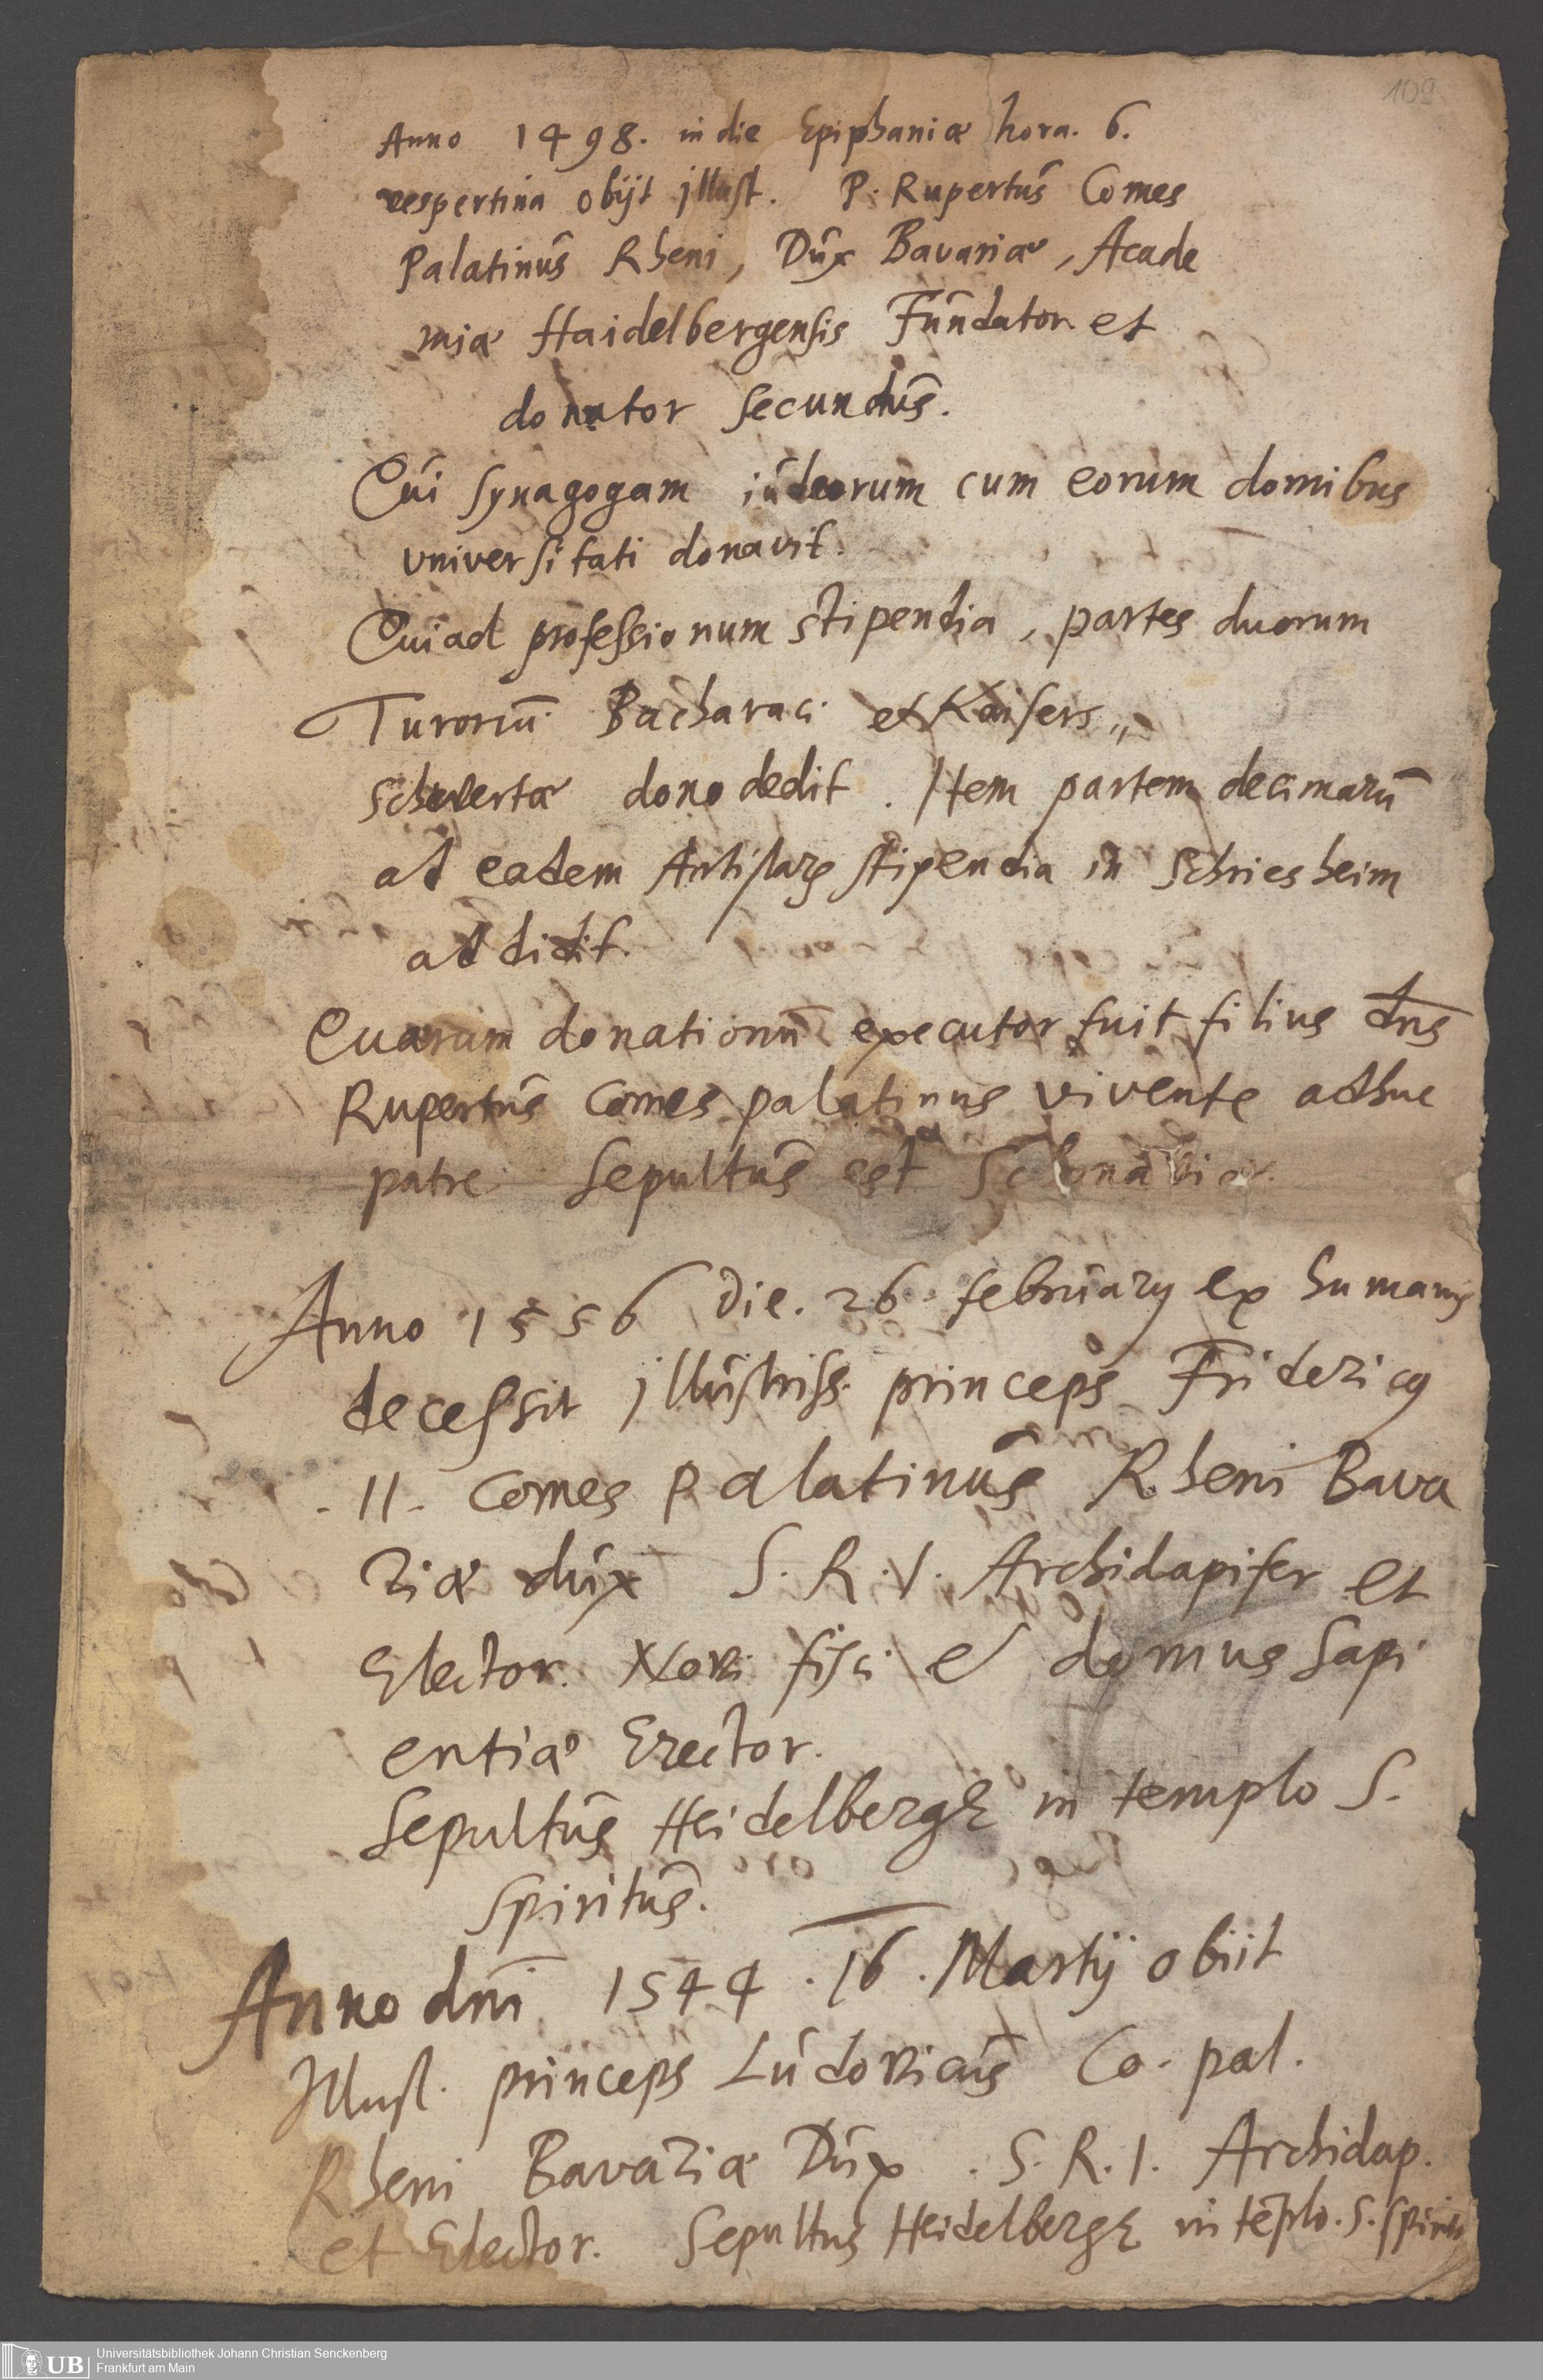 109
Anno 1498. in die Epiphaniæ hora. 6.
vespertina obijt illust. P. Rupertus Comes
Palatinus Rheni, Dux Bavariæ, Acade
miæ Haidelbergensis Fundator et
donator secundus.
Qui synagogam iudeorum cum eorum domibus
universitati donavit.
Qui ad professionum stipendia, partes duorum
Bacharaci et Kaisers„
dono dedit. Item partem decimarū
ad eadem stipendia in Schriesheim
addidit.
Quarum donationū executor fuit filius dns
Rupertus Comes palatinus vivente adhuc
patre sepultus est Schonaviæ.
Anno 1556 die. 26. february ex humanis
decessit illustriss. princeps Fridericus
.II. Comes Palatinus Rheni Bava
riæ dux S. R. I. Archidapifer et
Elector. Novi fisci et domus sapi
entiæ Erector.
Sepultus Heidelbergę in templo S.
Spiritus.
Anno dni 1544. 16. Martij obiit
Illust. princeps Ludovicus Co. pal.
Rheni Bavariæ Dux. S. R. I. Archidap.
et Elector. Sepultus Heidelbergę in tēplo. S. Spiritus
UB Universitätsbibliothek Johann Christian Senckenberg
Frankfurt am Main